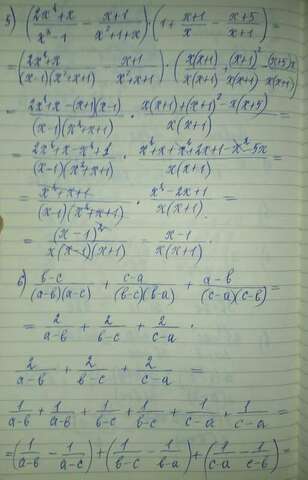 5) (2x²+x / x³-1 - x+1 / x²+1+x) · (1 + x+1 / x - x+5 / x+1) =
= (2x²+x / (x-1)(x²+x+1) - x+1 / x²+x+1) · (x(x+1) / x(x+1) + (x+1)² / x(x+1) - (x+5)x / x(x+1))
= 2x²+x-(x+1)(x-1) / (x-1)(x²+x+1) · x(x+1)+(x+1)²-x(x+5) / x(x+1) =
= 2x²+x-x²+1 / (x-1)(x²+x+1) · x²+x+x²+2x+1-x²-5x / x(x+1) =
= x²+x+1 / (x-1)(x²+x+1) · x²-2x+1 / x(x+1) =
= (x-1)² / x(x-1)(x+1) = x-1 / x(x+1) .
6) b-c / (a-b)(a-c) + c-a / (b-c)(b-a) + a-b / (c-a)(c-b) =
= 2 / a-b + 2 / b-c + 2 / c-a .
2 / a-b + 2 / b-c + 2 / c-a =
1 / a-b + 1 / a-b + 1 / b-c + 1 / b-c + 1 / c-a + 1 / c-a =
= (1 / a-b - 1 / a-c) + (1 / b-c - 1 / b-a) + (1 / c-a - 1 / c-b) =